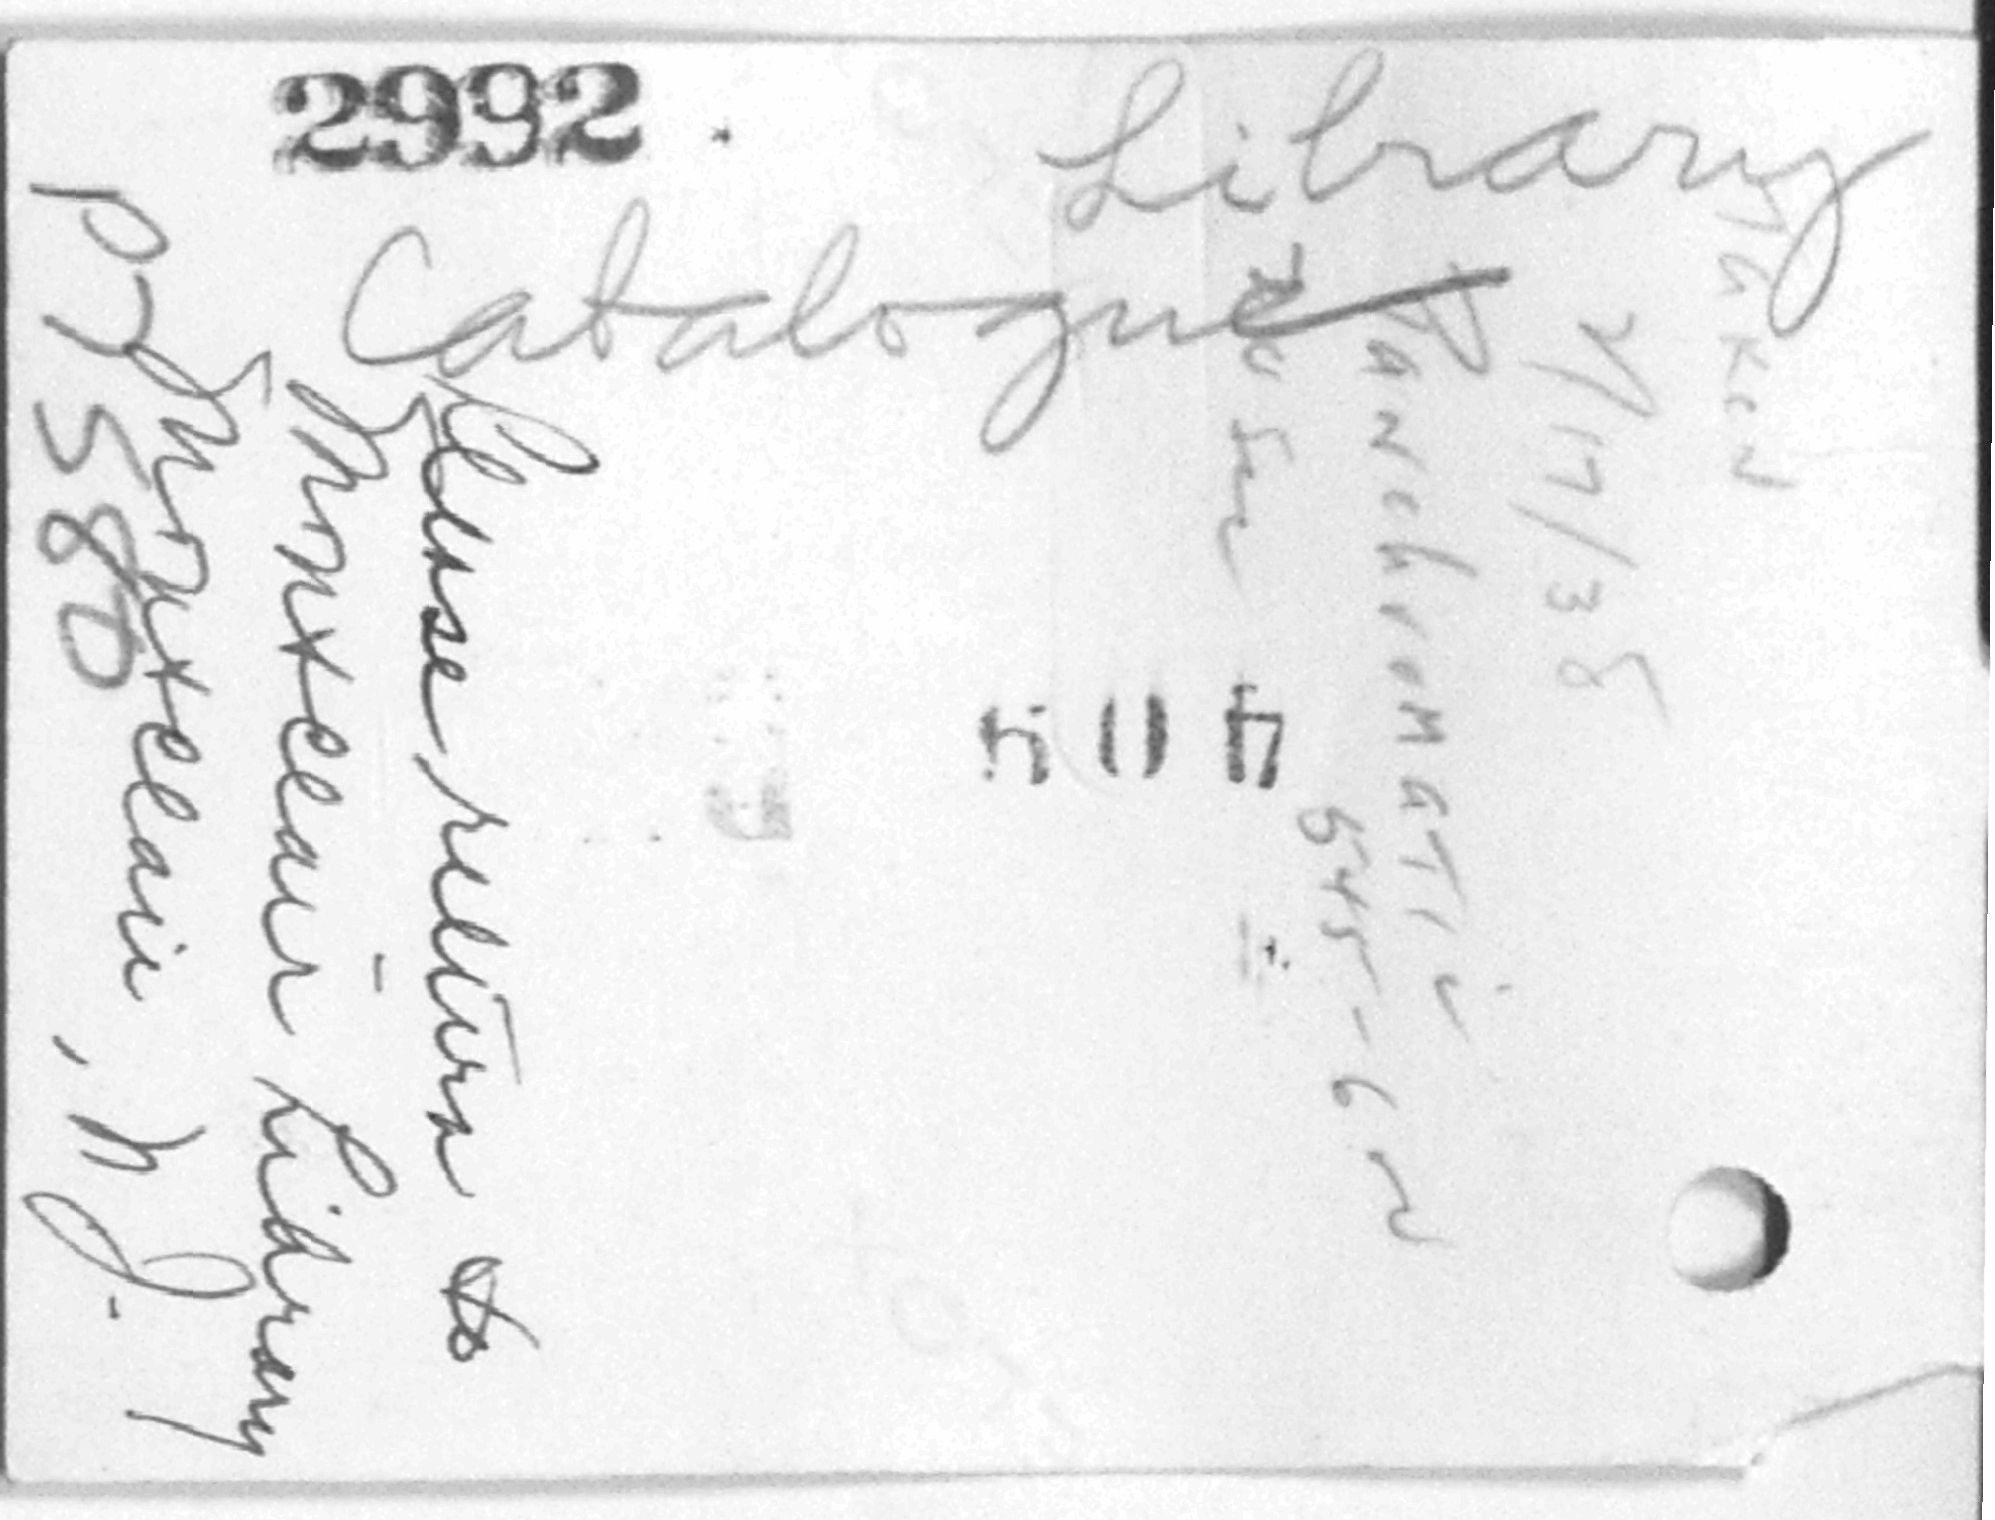 2992
Library
Catalogue
Taken
7/17/38
Panchromatic
545-6N
404
Please return to
Montclair Library
Montclair, N.J.
P
580